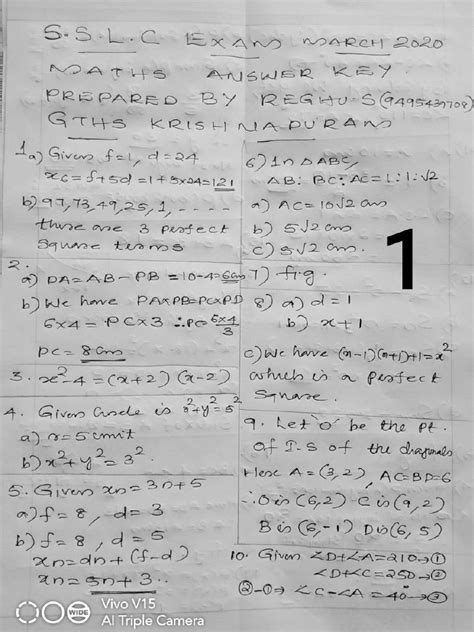 S.S.L.C EXAM MARCH 2020
MATHS ANSWER KEY
PREPARED BY REGHU.S (9495439708)
GTHS KRISHNAPURAM
1 a) Given f=1, d=24
x6=f+5d=1+5x24=121
b) 97,73,49,25,1, ----
there are 3 perfect
square terms
2.
a) PA=AB-PB=10-4=6cm
b) We have PAxPB=PCxPD
6x4=PCx3 ∴PC=6x4/3
PC=8cm
3. x²-4=(x+2)(x-2)
4. Given circle is x²+y²=5²
a) r=5 unit
b) x²+y²=3²
5. Given xn=3n+5
a) f=8, d=3
b) f=8, d=5
xn=dn+(f-d)
xn=5n+3..
6) In ΔABC,
AB:BC:AC=1:1:√2
a) AC=10√2 cm
b) 5√2 cm
c) 5√2 cm.
1
7) fig.
8) a) d=1
b) x+1
c) We have (x-1)(x+1)+1=x²
which is a perfect
square.
9. Let 'O' be the pt.
of I.S of the diagonals
Here A=(3,2), AC=BD=6
∴O is (6,2) C is (9,2)
B is (6,-1) D is (6,5)
10. Given ∠D+∠A=210→①
∠D+∠C=250→②
②-①→ ∠C-∠A=40→③
WIDE
Vivo V15
AI Triple Camera